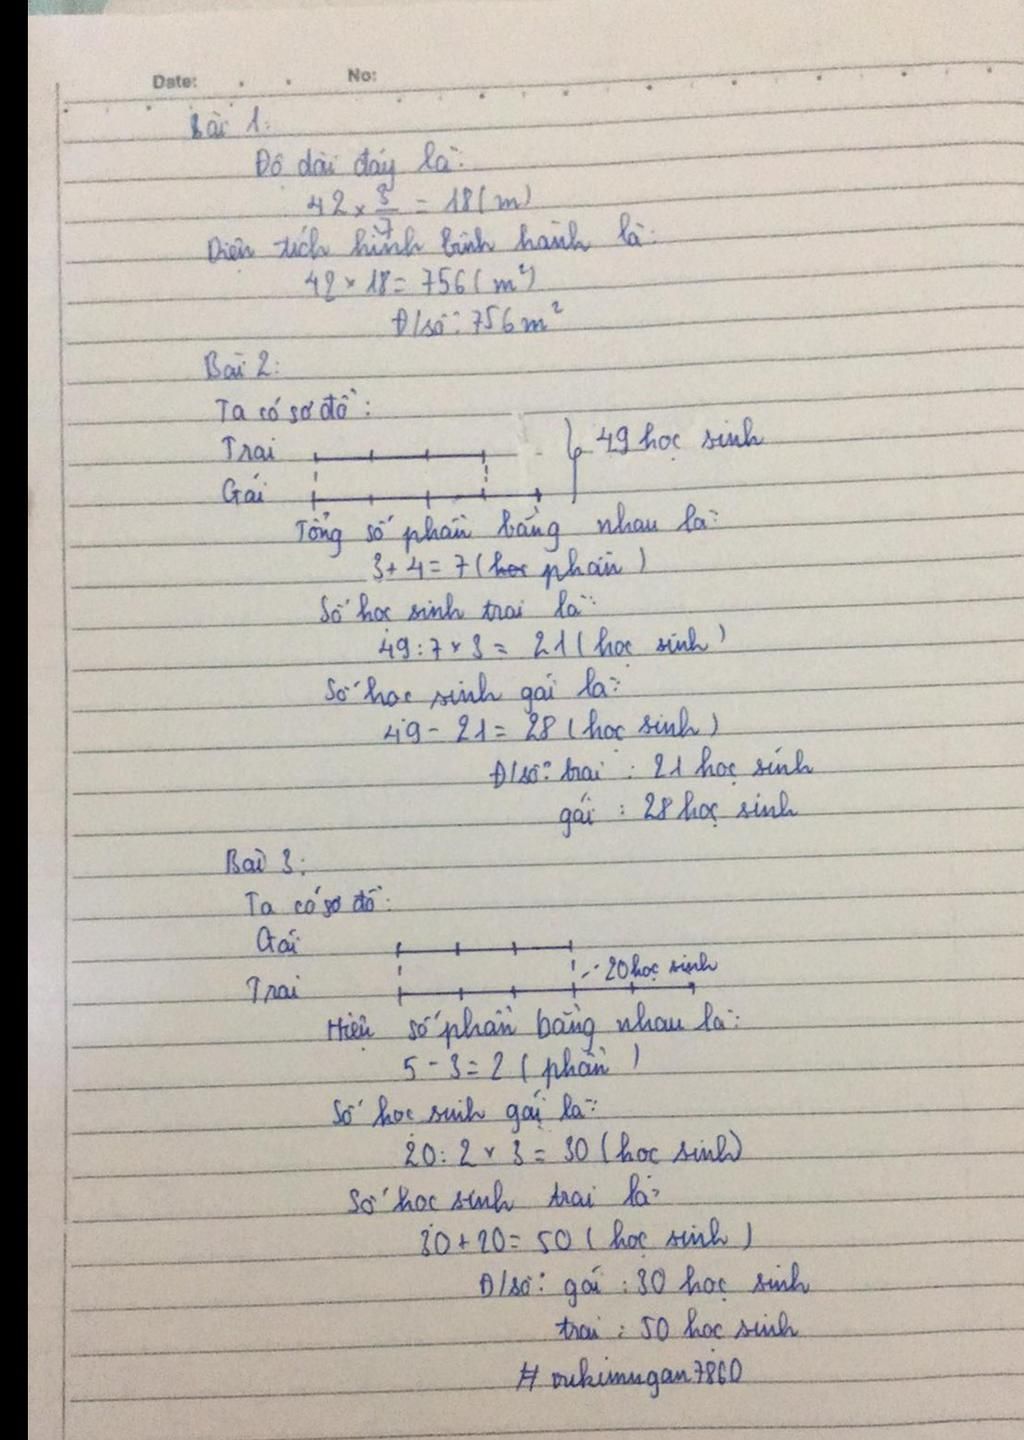 Date: No:
Bài 1:
Độ dài đáy là:
42 × 3/7 = 18 (m)
Diện tích hình bình hành là:
42 × 18 = 756 (m²)
Đ/số: 756 m²
Bài 2:
Ta có sơ đồ:
Trai
49 học sinh
Gái
Tổng số phần bằng nhau là:
3 + 4 = 7 (phần)
Số học sinh trai là:
49 : 7 × 3 = 21 (học sinh)
Số học sinh gái là:
49 - 21 = 28 (học sinh)
Đ/số: trai : 21 học sinh
gái : 28 học sinh
Bài 3:
Ta có sơ đồ:
Gái
20 học sinh
Trai
Hiệu số phần bằng nhau là:
5 - 3 = 2 (phần)
Số học sinh gái là:
20 : 2 × 3 = 30 (học sinh)
Số học sinh trai là:
30 + 20 = 50 (học sinh)
Đ/số: gái : 30 học sinh
trai : 50 học sinh
#